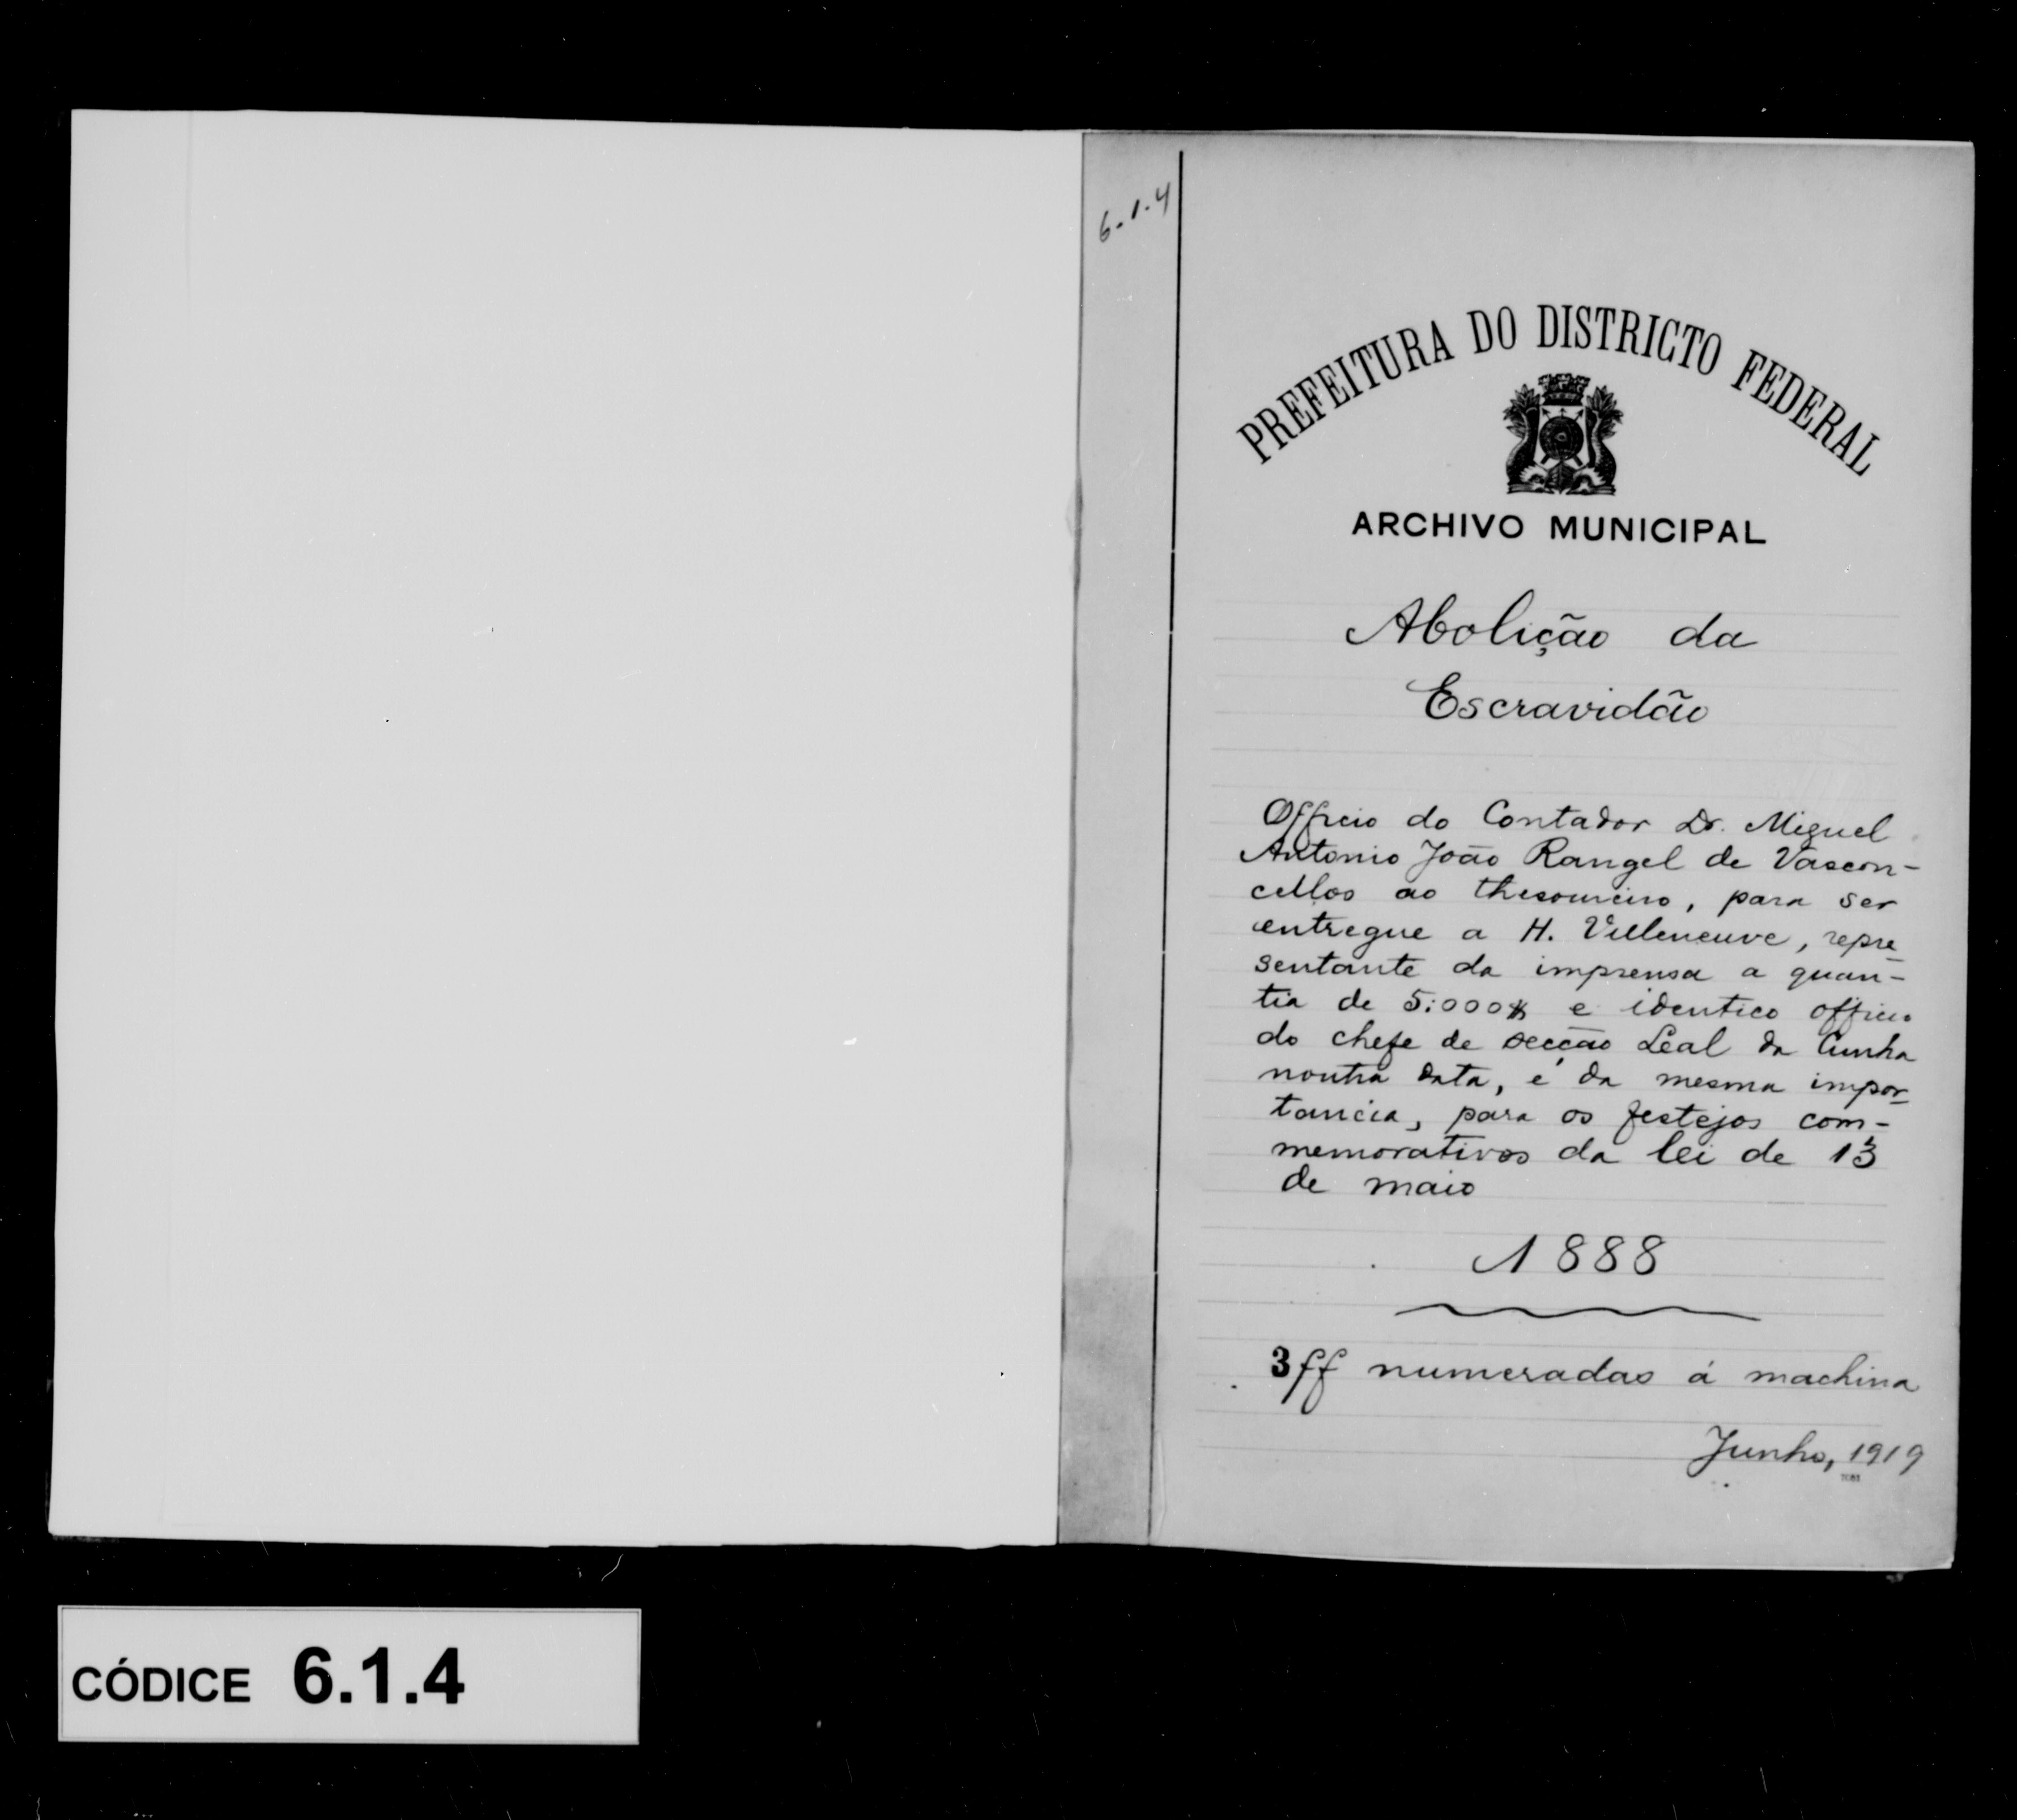 6-1-4
PREFEITURA DO DISTRICTO FEDERAL
ARCHIVO MUNICIPAL
Abolição da
Escravidão
Officio do Contador Dr. Miguel
Antonio João Rangel de Vascon-
cellos ao thesoureiro, para ser
entregue a H. Villeneuve, repre
sentante da imprensa a quan-
tia de 5:000$ e identico officio
do chefe de secção Leal da Cunha
noutra data, é da mesma impor
tancia, para os festejos com-
memorativos da lei de 13
de maio
1888
3 ff numeradas á machina
Junho, 1919
CÓDICE 6.1.4